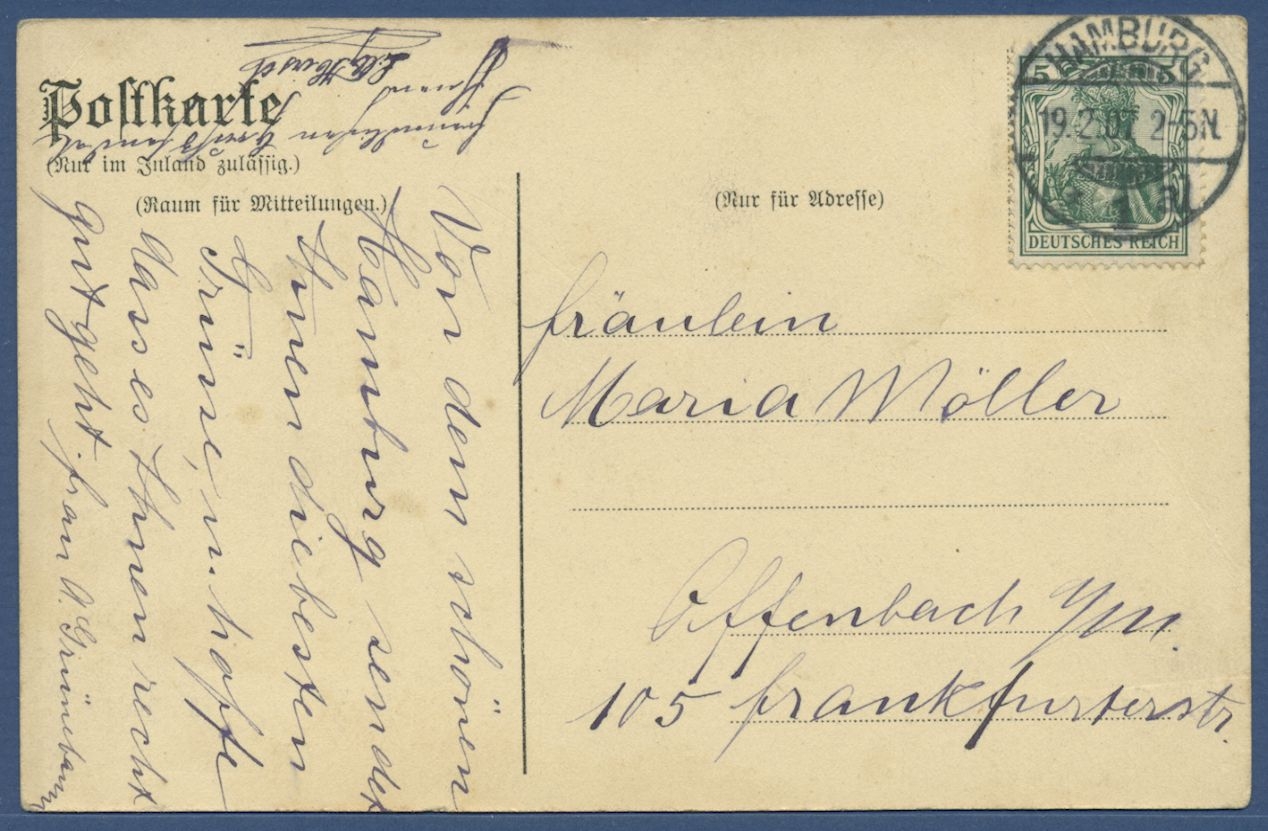 Postkarte
(Nur im Inland zulässig.)
(Raum für Mitteilungen.)
(Nur für Adresse)
HAMBURG
19.2.07 2-5N.
1
5 5
DEUTSCHES REICH
Fräulein
Maria Möller
Offenbach a/M.
105 Frankfurterstr.
Von dem schönen
Hamburg sendet
Ihnen die besten
Grüsse, u. hoffe
dass es Ihnen recht
gut geht. Frau A. Grünebaum
Freundlichen Gruß